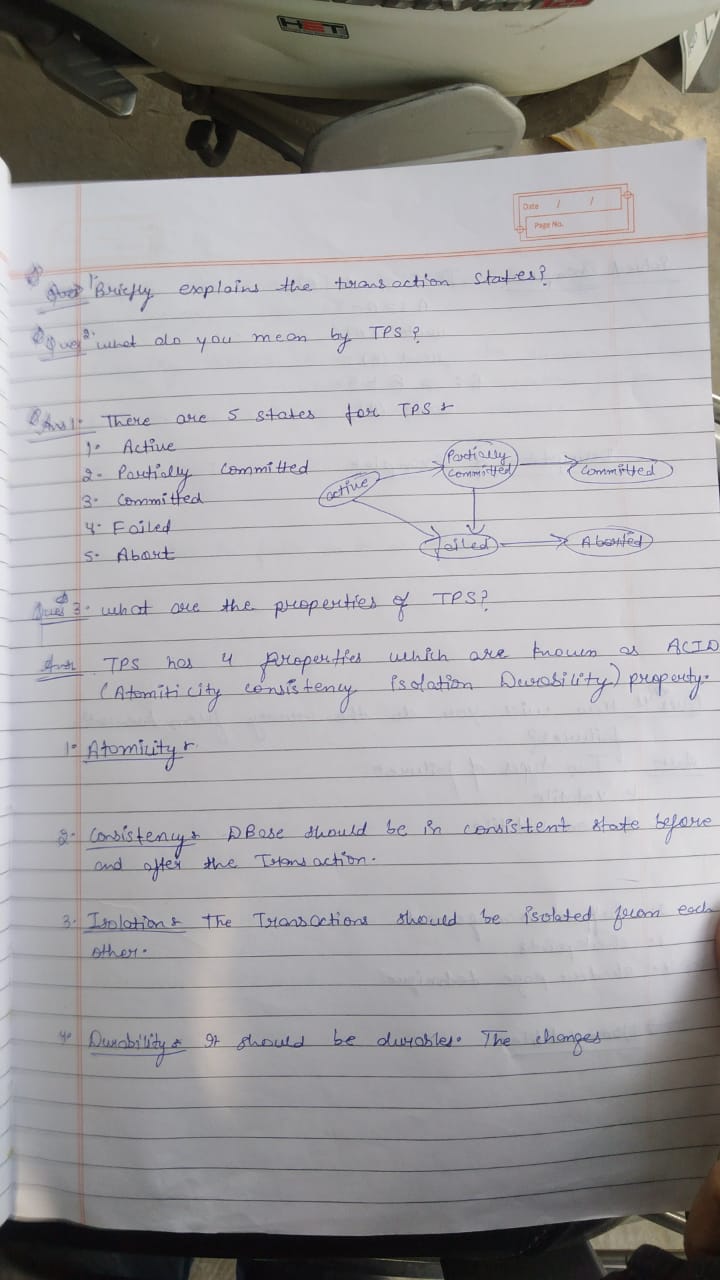 HET
Date / /
Page No.
Ques 1. Briefly explains the transaction states?
Ques 2. what do you mean by TPS?
Ans 1. There are 5 states for TPS :
1. Active
2. Partially Committed
3. Committed
4. Failed
5. Abort
active
Partially
Committed
Committed
Failed
Aborted
Ques 3. what are the properties of TPS?
Ans TPS has 4 properties which are known as ACID
(Atomiticity consistency isolation Durability) property.
1. Atomicity :
2. Consistency : DBase should be in consistent state before
and after the Transaction.
3. Isolation : The Transactions should be isolated from each
other.
4. Durability : It should be durables. The changes